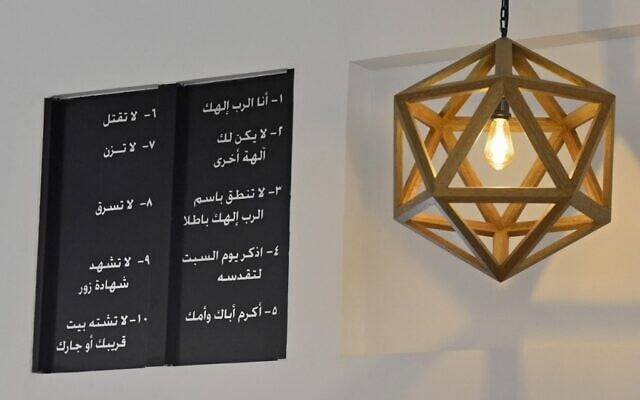 ١- أنا الرب إلهك
٢- لا يكن لك
آلهة أخرى
٣- لا تنطق باسم
الرب إلهك باطلا
٤- اذكر يوم السبت
لتقدسه
٥- أكرم أباك وأمك
٦- لا تقتل
٧- لا تزن
٨- لا تسرق
٩- لا تشهد
شهادة زور
١٠- لا تشته بيت
قريبك أو جارك